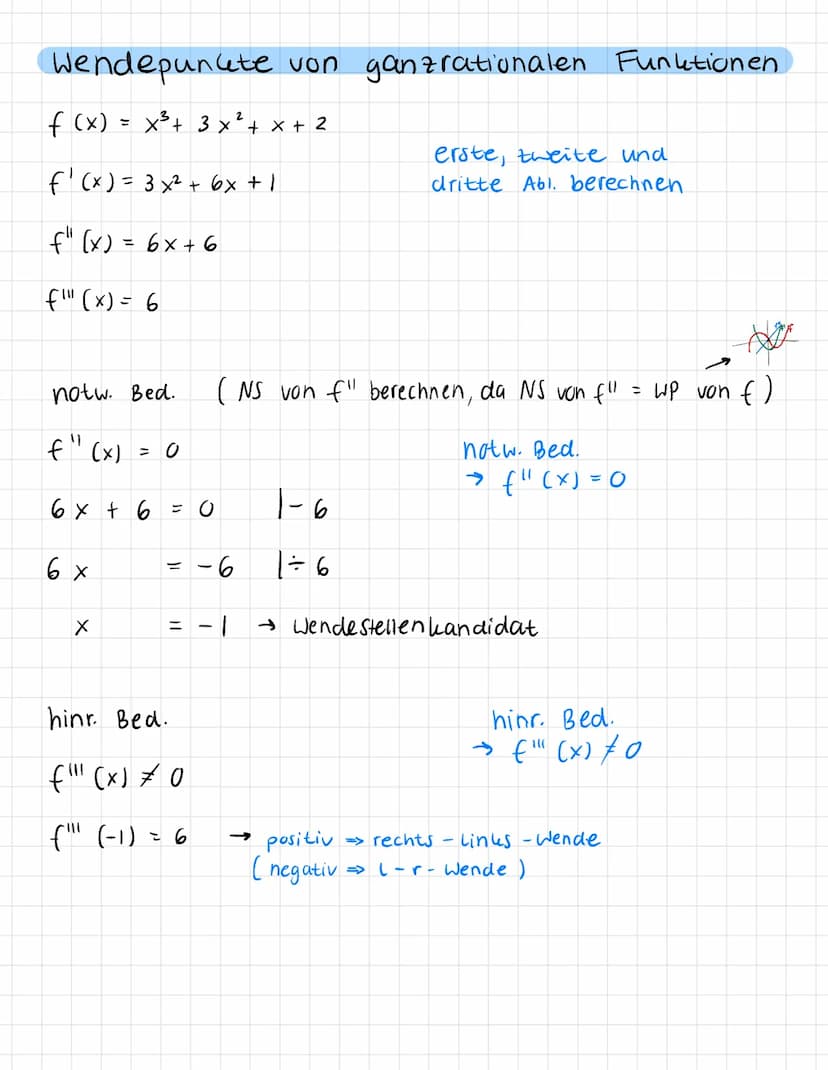 Wendepunkte von ganzrationalen Funktionen
f(x) = x³ + 3x² + x + 2
erste, zweite und
dritte Abl. berechnen
f'(x) = 3x² + 6x + 1
f''(x) = 6x + 6
f'''(x) = 6
notw. Bed. (NS von f'' berechnen, da NS von f'' = WP von f)
f''(x) = 0
notw. Bed.
→ f''(x) = 0
6x + 6 = 0 |- 6
6x = -6 |÷ 6
x = -1 → Wendestellenkandidat
hinr. Bed.
hinr. Bed.
→ f'''(x) ≠ 0
f'''(x) ≠ 0
f'''(-1) = 6 → positiv ⇒ rechts-links-Wende
(negativ ⇒ l-r-Wende)